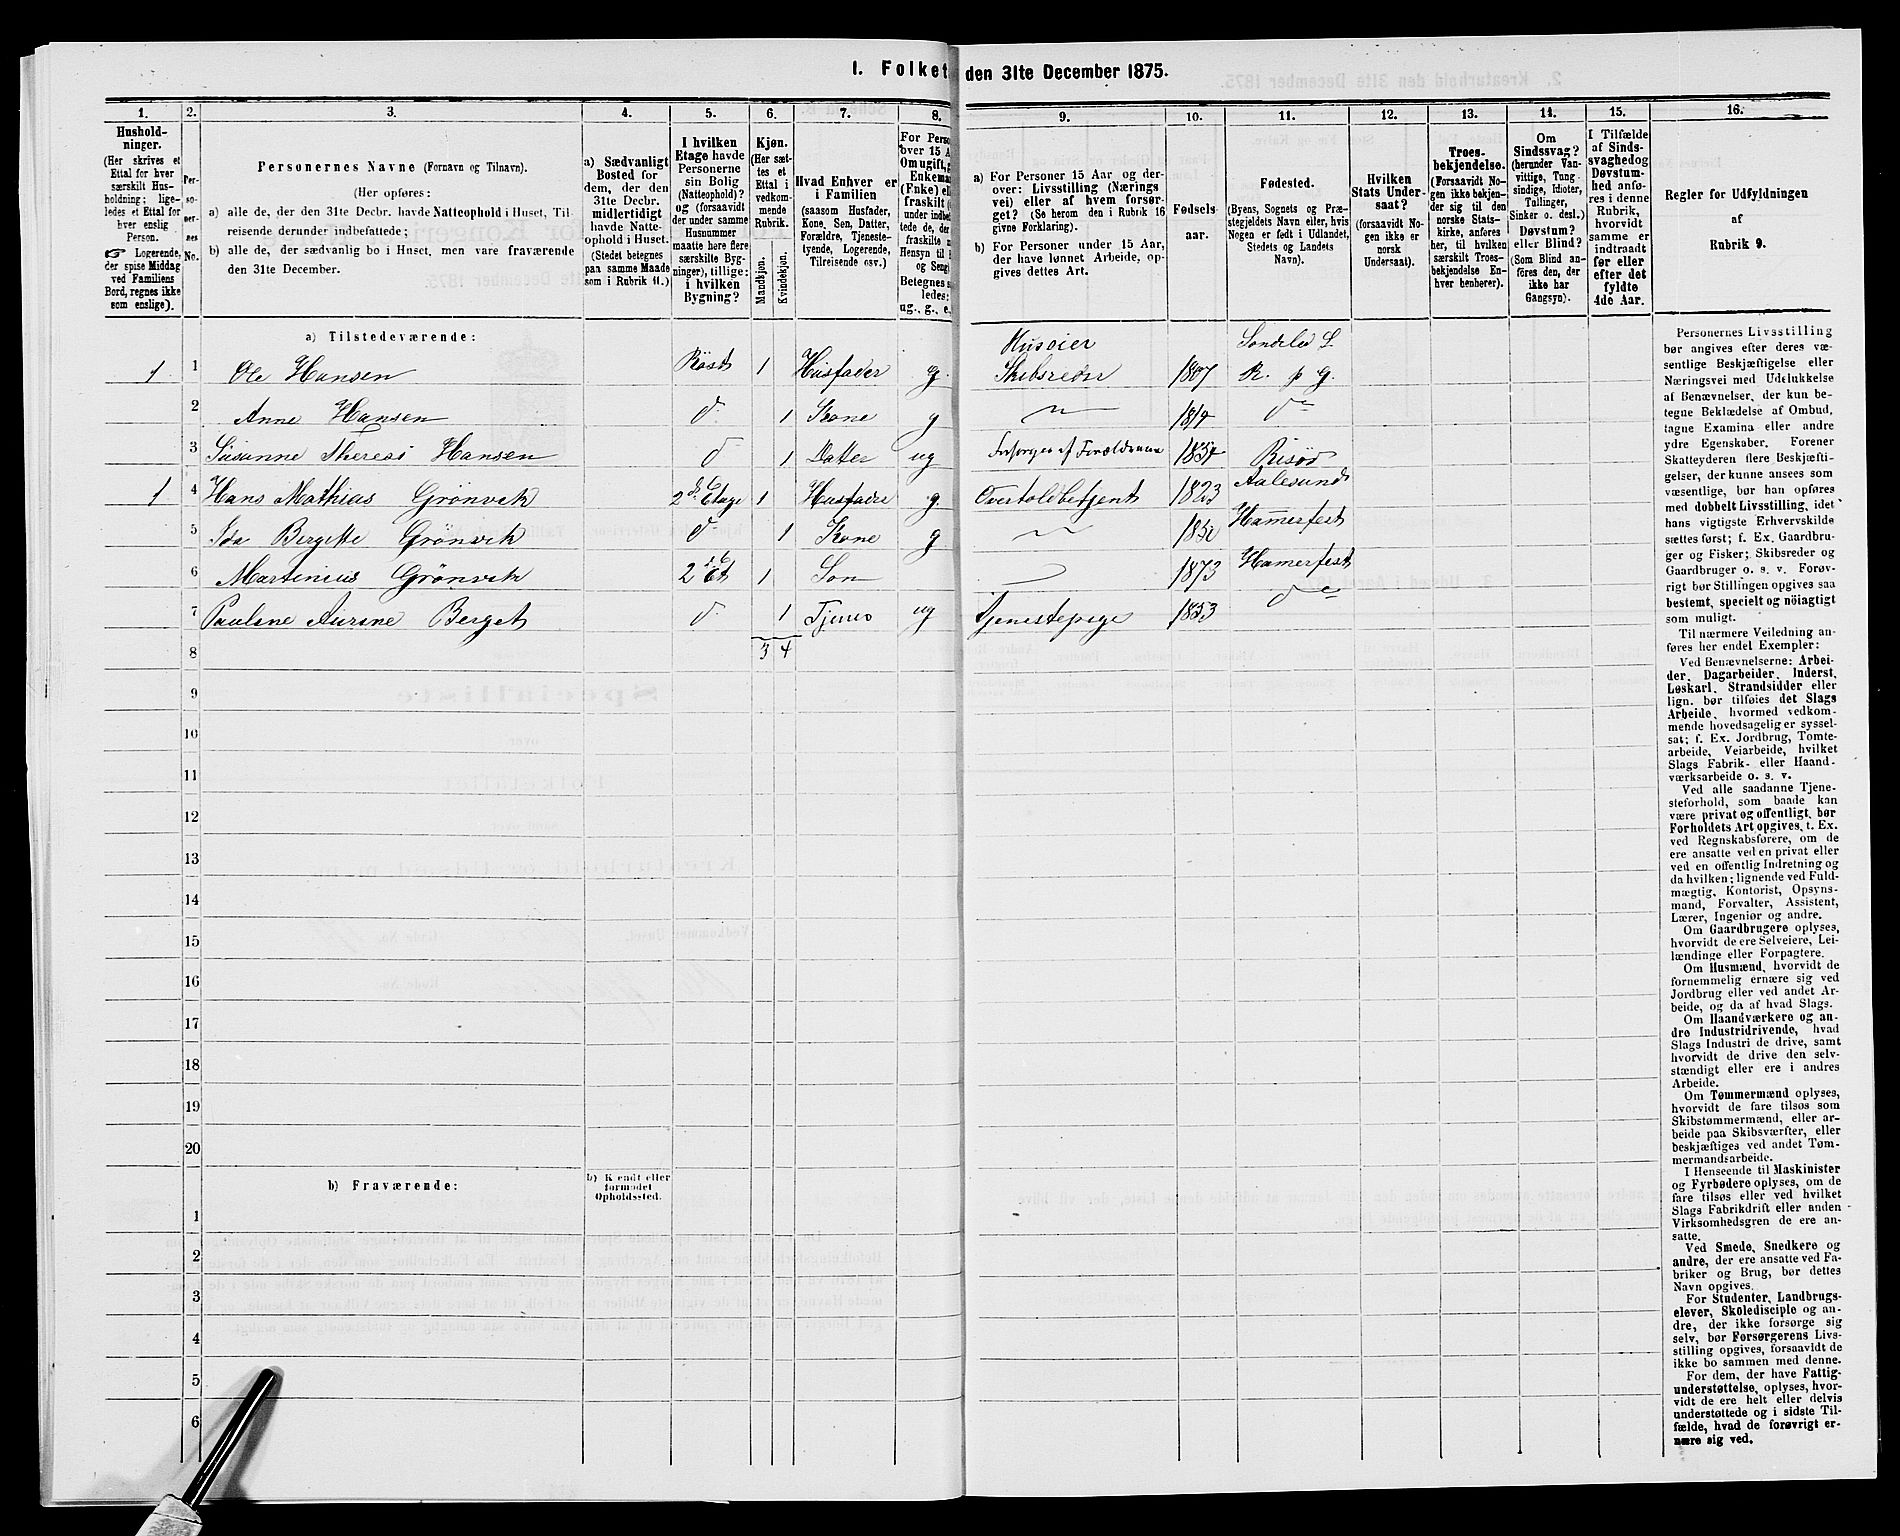 I. Folket den 31te December 1875.
1. 2. 3. 4. 5. 6. 7. 8. 9. 10. 11. 12. 13. 14. 15. 16.
Hushold-
ninger.
(Her skrives et
Ettal for hver
særskilt Hus-
holdning; lige-
ledes et Ettal for
hver enslig
Person.
☞ Logerende,
der spise Middag
ved Familiens
Bord, regnes ikke
som enslige).
Per-
so-
ner-
nes
No.
Personernes Navne (Fornavn og Tilnavn).
(Her opføres:
a) alle de, der den 31te Decbr. havde Natteophold i Huset, Til-
reisende derunder indbefattede;
b) alle de, der sædvanlig bo i Huset, men vare fraværende
den 31te December.
a) Sædvanligt
Bosted for
dem, der den
31te Decbr.
midlertidigt
havde Natte-
ophold i Huset.
(Stedet betegnes
paa samme Maade
som i Rubrik 11.)
I hvilken
Etage havde
Personerne
sin Bolig
(Natteophold)?
og (forsaavidt
der under samme
Husnummer
maatte høre flere
særskilte Byg-
ninger), tillige:
i hvilken
Bygning?
Kjøn.
(Her sæt-
tes et
Ettal i
vedkom-
mende
Rubrik.
Mandkjøn.
Kvindekjøn.
Hvad Enhver er
i Familien
(saasom Husfader,
Kone, Søn, Datter,
Forældre, Tjeneste-
tyende, Logerende,
Tilreisende osv.)
For Perso
over 15 A
Om ugift, g
Enkema
(Enke) ell
fraskilt (
under indbef
tede de, der
fraskilte
Hensyn til
og Seng)
Betegnes s
ledes:
ug., g., e.,
a) For Personer 15 Aar og der-
over: Livsstilling (Nærings
vei) eller af hvem forsør-
get? (Se herom den i Rubrik 16
givne Forklaring).
b) For Personer under 15 Aar,
der have lønnet Arbeide, op-
gives dettes Art.
Fødsels-
aar.
Fødested.
(Byens, Sognets og Præ-
stegjeldets Navn eller, hvis
Nogen er født i Udlandet,
Stedets og Landets
Navn).
Hvilken
Stats Under-
saat?
(forsaavidt No-
gen ikke er
norsk
Undersaat).
Troes-
bekjendelse.
(Forsaavidt No-
gen ikke bekjen-
der sig til den
norske Stats-
kirke, anføres
her, til hvilken
særskilt Troes-
bekjendelse En-
hver henhører).
Om
Sindssvag?
(herunder Van-
vittige, Tung-
sindige, Idioter,
Tallinger,
Sinker o. desl.)
Døvstum?
eller Blind?
(Som Blind an-
føres den, der
ikke har
Gangsyn).
I Tilfælde
af Sinds-
svaghed og
Døvstum-
hed anfø-
res i denne
Rubrik,
hvorvidt
samme er
indtraadt
før eller
efter det
fyldte
4de Aar.
Regler for Udfyldningen
af
Rubrik 9.
a) Tilstedeværende:
1 1 Ole Hansen Röst 1 Husfader g. Husoier Skibsreder 1807 Sondeled S. R. p G.
2 Anne Hansen d 1 Kone g 1819 do
3 Susanne Hansen d 1 Datter ug Forsörges af Forældrene 1854 Risör
1 4 Hans Mathias Grönvik 2d Etage 1 Husfader g Overtoldbetjent 1823 Aalesund
5 Ida Bergitte Grönvik d 1 Kone g Hamerfest
6 Martinius Grönvik 2d Et 1 Son 1873 Hamerfest
7 Pauline Berget d 1 Tjener ug Tjenestepige 1853 do
8 3 4
9
10
11
12
13
14
15
16
17
18
19
20
b) Fraværende:
b) Kjendt eller
formodet
Opholdssted.
1
2
3
4
5
6
Personernes Livsstilling
bør angives efter deres væ-
sentlige Beskjæftigelse eller
Næringsvei med Udelukkelse
af Benævnelser, der kun be-
tegne Beklædelse af Ombud,
tagne Examina eller andre
ydre Egenskaber. Forener
Skatteyderen flere Beskjæfti-
gelser, der kunne ansees som
væsentlige, bør han opføres
med dobbelt Livsstilling, idet
hans vigtigste Erhvervskilde
sættes først; f. Ex. Gaardbru-
ger og Fisker; Skibsreder og
Gaardbruger o. s. v. Forøv-
rigt bør Stillingen opgives saa
bestemt, specielt og nöiagtigt
som muligt.
Til nærmere Veiledning an-
føres her endel Exempler:
Ved Benævnelserne: Arbei-
der, Dagarbeider, Inderst,
Løskarl, Strandsidder eller
lign. bør tilføies det Slags
Arbeide, hvormed vedkom-
mende hovedsagelig er syssel-
sat; f. Ex. Jordbrug, Tomte-
arbeide, Veiarbeide, hvilket
Slags Fabrik- eller Haand-
værksarbeide o. s. v.
Ved alle saadanne Tjene-
steforhold, som baade kan
være privat og offentligt, bør
Forholdets Art opgives, t. Ex.
ved Regnskabsførere, om de
ere ansatte ved en privat eller
ved en offentlig Indretning og
da hvilken; lignende ved Fuld-
mægtig, Kontorist, Opsyns-
mand, Forvalter, Assistent,
Lærer, Ingeniør og andre.
Om Gaardbrugere oplyses,
hvorvidt de ere Selveiere, Lei-
lændinge eller Forpagtere.
Om Husmænd, hvorvidt de
fornemmelig ernære sig ved
Jordbrug eller ved andet Ar-
beide, og da af hvad Slags.
Om Haandværkere og an-
dre Industridrivende, hvad
Slags Industri de drive, samt
hvorvidt de drive den selv-
stændigt eller ere i andres
Arbeide.
Om Tømmermænd oplyses,
hvorvidt de fare tilsøs som
Skibstømmermænd, eller ar-
beide paa Skibsværfter, eller
beskjæftiges ved andet Tøm-
mermandsarbeide.
I Henseende til Maskinister
og Fyrbødere oplyses, om de
fare tilsøs eller ved hvilket
Slags Fabrikdrift eller anden
Virksomhedsgren de ere an-
satte.
Ved Smede, Snedkere og
andre, der ere ansatte ved Fa-
briker og Brug, bør dettes
Navn opgives.
For Studenter, Landbrugs-
elever, Skoledisciple og an-
dre, der ikke forsørge sig
selv, bør Forsørgerens Livs-
stilling opgives, forsaavidt de
ikke bo sammen med denne.
For dem, der have Fattig-
understøttelse, oplyses, hvor-
vidt de ere helt eller delvis
understøttede og i sidste Til-
fælde, hvad de forøvrigt er-
nære sig ved.